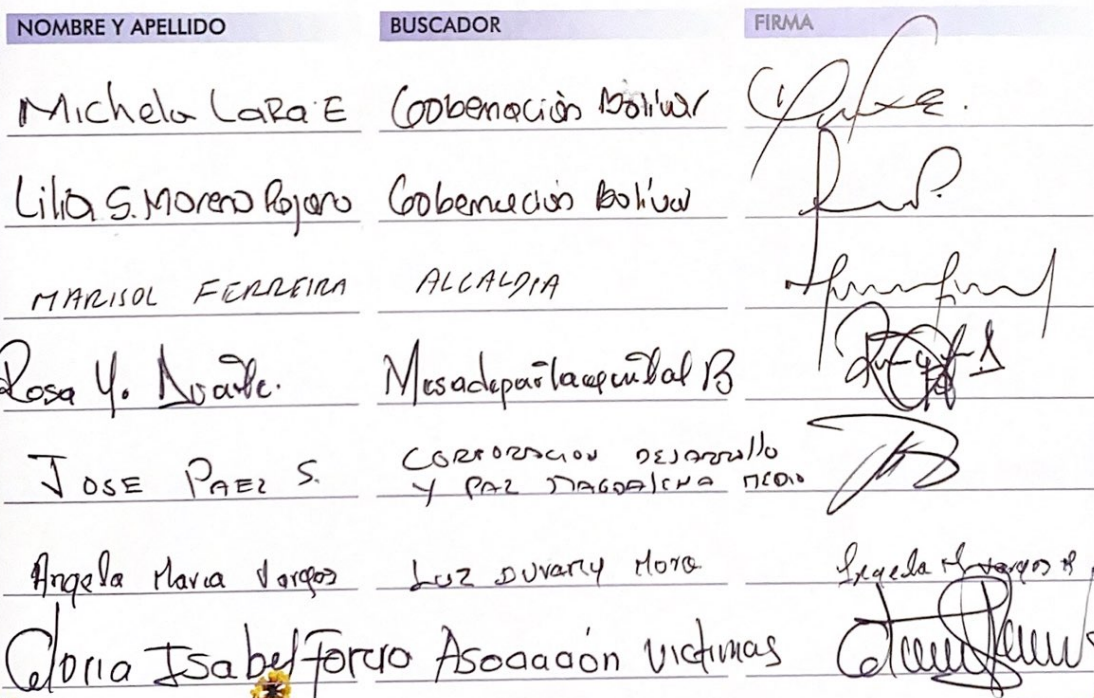 NOMBRE Y APELLIDO BUSCADOR FIRMA
Michela Lara E Gobernación Bolívar
Lilia S. Moreno Rojano Gobernación Bolívar
MARISOL FERREIRA ALCALDIA
Rosa Y.
JOSE PAEZ S. CORPORACION DESARROLLO
Y PAZ MAGDALENA MEDIO
Angela Maria Vargas Luz Duvany Mora Angela M Vargas
Gloria Isabel Asociación victimas